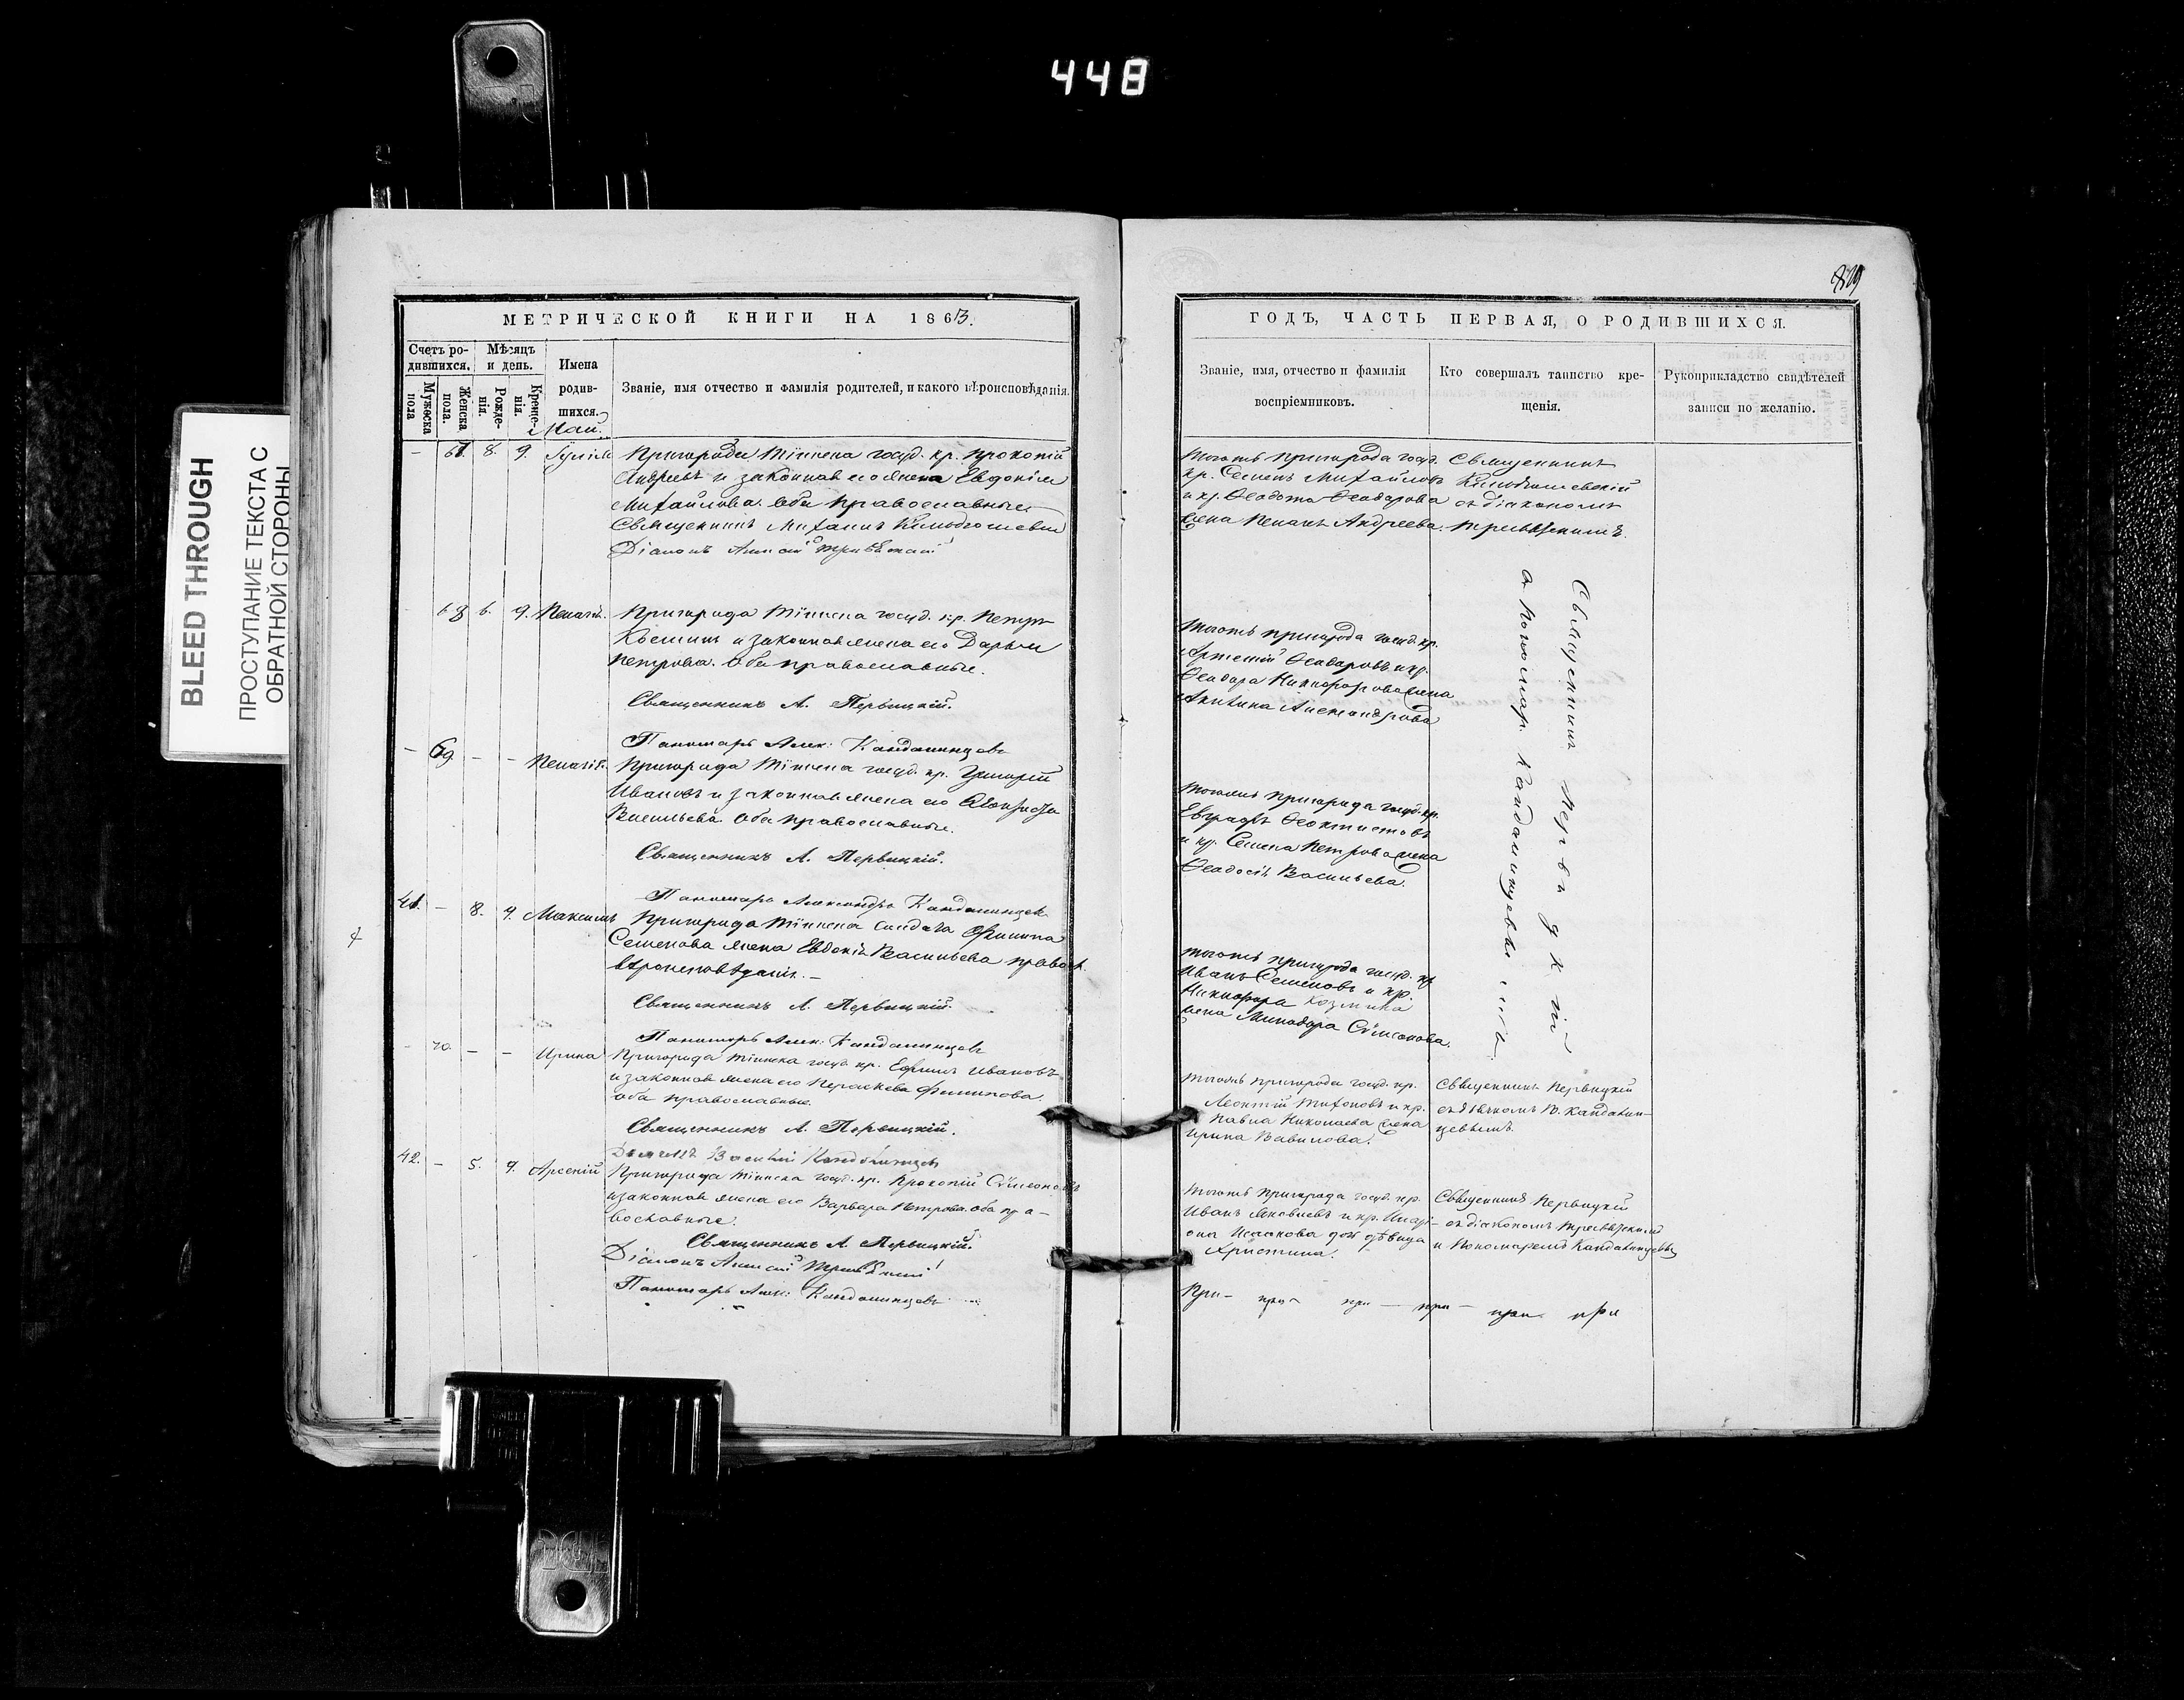 448
BLEED THROUGH
ПРОСТУПАНИЕ ТЕКСТА С
ОБРАТНОЙ СТОРОНЫ
МЕТРИЧЕСКОЙ КНИГИ НА 1863.
Счетъ ро-
дившихся.
Мужеска пола
Женска пола.
Мѣсяцъ
и день.
Рожде-
нія.
Креще-
нія.
Имена
родив-
шихся.
Май.
Званіе, имя отчество и фамилія родителей, и какого вѣроисповѣданія.
- 67. 8. 9. Пригорода Тіинска госуд. кр. Прокопій
Андреевъ и законная его жена Евдокія
Михайлова. Оба православные
Священникъ Михаилъ
Діаконъ Алексій
68 6. 9. Пелагія. Пригорода Тіинска госуд. кр. Петръ
Косминъ и законная жена его Дарья
Петрова. Оба православные.
Священникъ А. Первицкій.
Пономарь Алек: Кандалинцевъ
- 69. - - Пелагія. Пригорода Тіинска госуд. кр. Григорій
Ивановъ и законная жена его
Васильева. Оба православные.
Священникъ А. Первицкій.
Пономарь Александръ Кандалинцевъ
41. - 8. 9. Максимъ Пригорода Тіинска солдата Филипа
Семенова жена Евдокія Васильева правосл.
вѣроисповѣданія. -
Священникъ А. Первицкій.
Пономарь Алек: Кандалинцевъ
- 70. - - Ирина Пригорода Тіинска госуд. кр. Ефимъ Ивановъ
и законная жена его Параскева Филипова.
оба православные.
Священникъ А. Первицкій.
Василій Кандалинцевъ
42. - 5. 9. Арсеній Пригорода Тіинска госуд. кр. Прокопій Сѵмеоновъ
и законная жена его Варвара Петрова. оба пра-
вославные.
Священникъ А. Первицкій.
Діаконъ Алексій
Пономарь Алек: Кандалинцевъ
ГОДЪ, ЧАСТЬ ПЕРВАЯ, О РОДИВШИХСЯ.
Званіе, имя, отчество и фамилія
воспріемниковъ.
Кто совершалъ таинство кре-
щенія.
Рукоприкладство свидѣтелей
записи по желанію.
тогожъ пригорода госуд.
кр. Семенъ Михайловъ
и кр. Ѳеодота Ѳеодорова
жена Пелагія Андреева.
Священникъ
съ діакономъ
тогожъ пригорода госуд. кр.
Артемій Ѳеодоровъ и кр.
Ѳеодора Никифорова жена
Акилина Александрова
тогожъ пригорода госуд. кр.
Евграфъ Ѳеоктистовъ
и кр. Семена Петрова жена
Ѳеодосія Васильева.
тогожъ пригорода госуд. кр.
Иванъ Семеновъ и кр.
Никифора Козмина
жена Минодора Сѵмеонова.
Священникъ Первицкій
съ Пономар. Кандалинцевымъ.
тогожъ пригорода госуд. кр.
Леонтій Тихоновъ и кр.
Павла Николаева жена
Ирина Вавилова.
Священникъ Первицкій
съ дьячкомъ В. Кандалин-
цевымъ.
тогожъ пригорода госуд. кр.
Иванъ Яковлевъ и кр. Илари-
она Исакова дочь дѣвица
Христина.
Священникъ Первицкій
съ діакономъ
и Пономаремъ Кандалинцевымъ
При- при- при- при- при- при